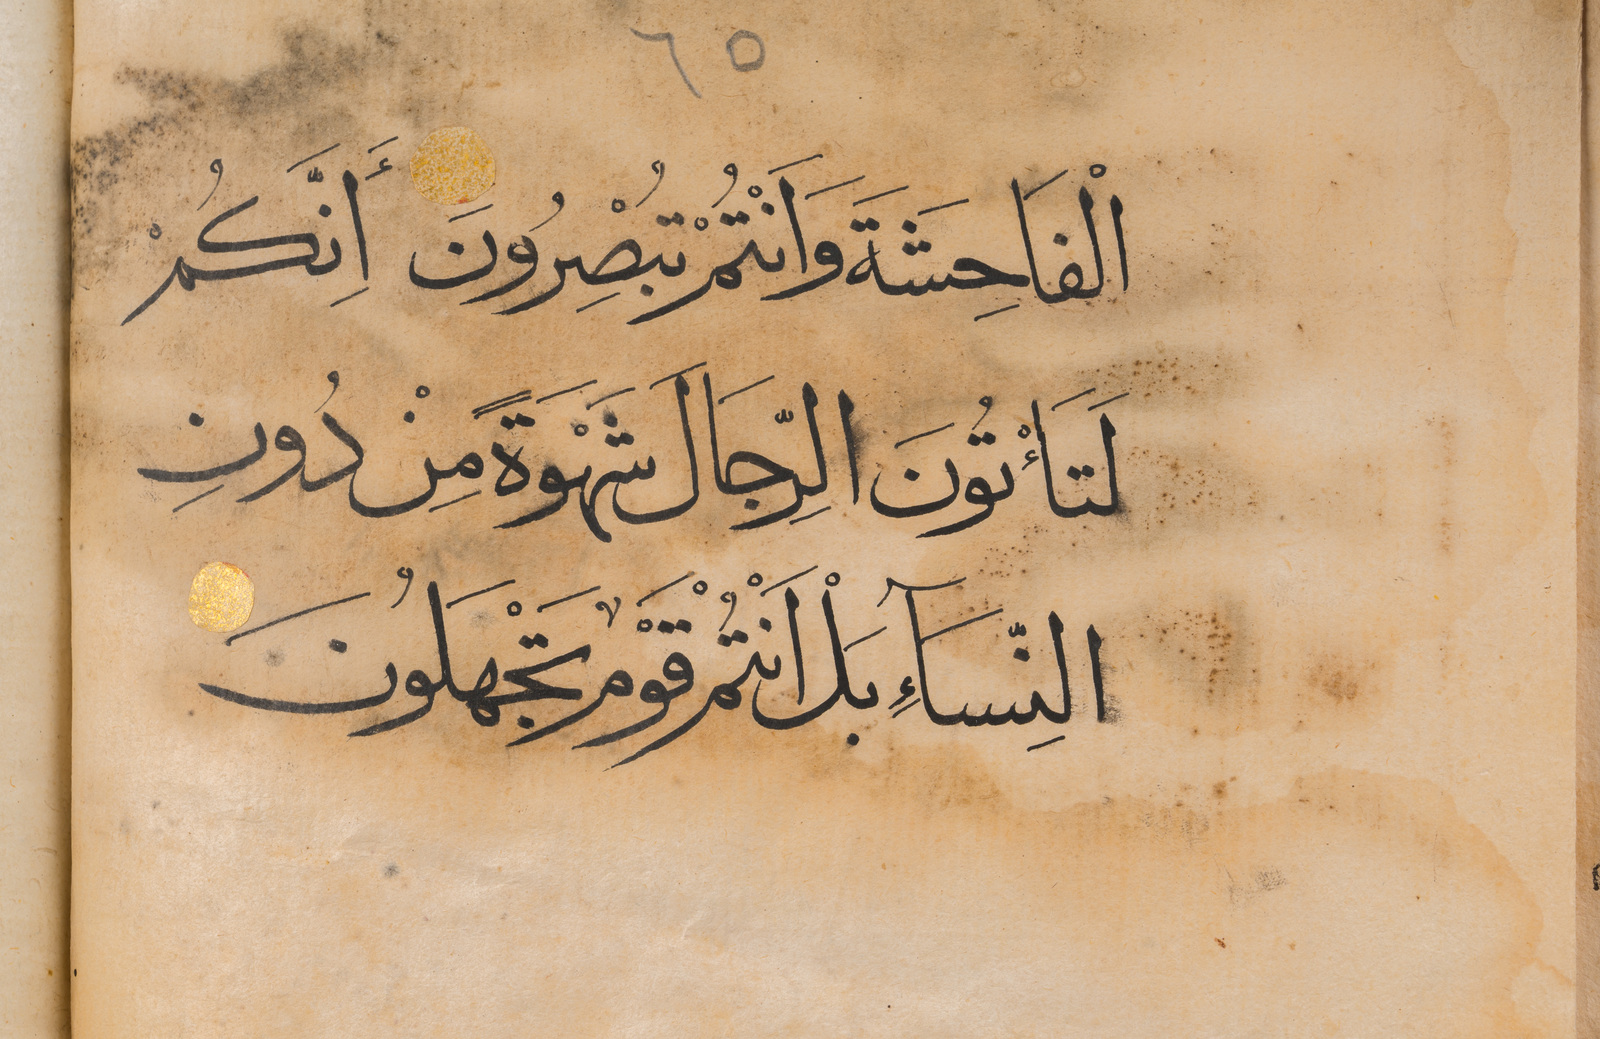 ٦٥
الْفَاحِشَةَ وَاَنْتُمْ تُبْصِرُونَ أَاِنَّكُمْ
لَتَاْءتُونَ الرِّجَالَ شَهْوَةً مِنْ دُونِ
النِّسَآءِ بَلْ اَنْتُمْ قَوْمٌ تَجْهَلُونَ